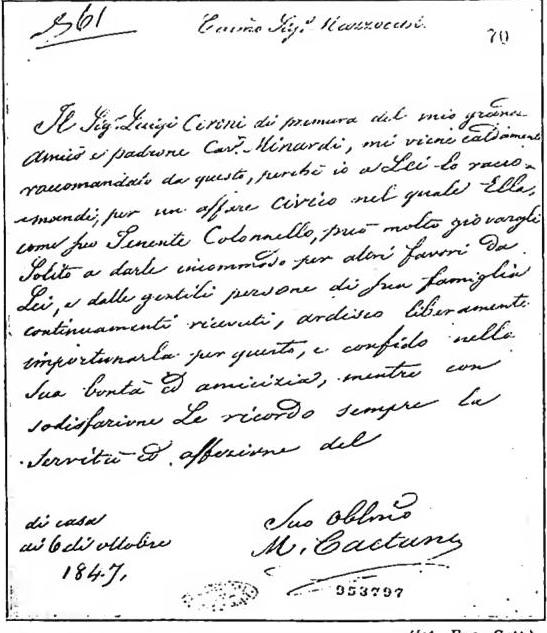 861
Car̃mo Sigr. Mazzocchi.
70
Il Sigr. Luigi Cirini di premura del mio grande
amico e padrone Cavr. Minardi, mi viene caldamente
raccomandato da questo, perchè io a Lei lo racco=
=mandi, per un affare civico nel quale Ella,
come suo Tenente Colonnello, può molto giovargli
Solito a darle incommodo per altri favori da
Lei, e dalle gentili persone di sua famiglia
continuamenti ricevuti, ardisco liberamente
importunarla per questo, e confido nella
sua bontà ed amicizia, mentre con
sodisfazione Le ricordo sempre la
servitù ed affezione del
di casa
ai 6 di ottobre
1847,
Suo Obblmo
M. Caetani
953797